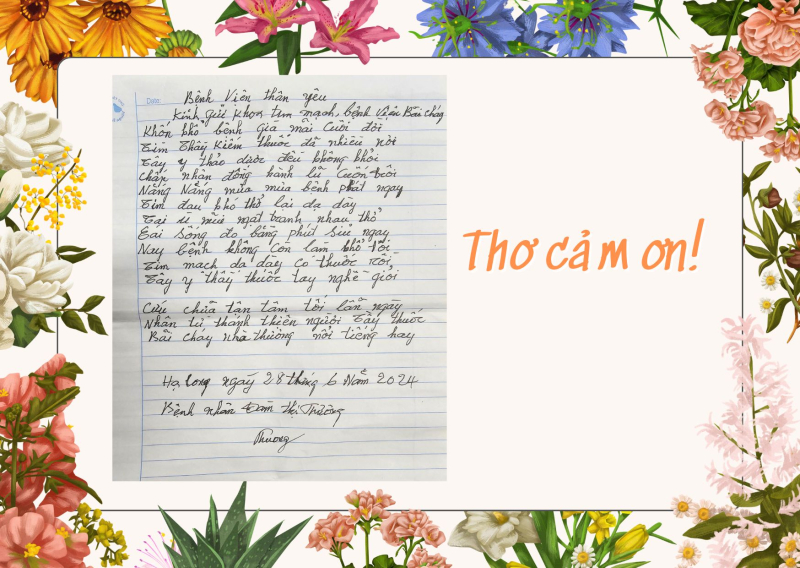 Date:
Bệnh Viện thân yêu
Kính gửi khoa tim mạch, bệnh viện Bãi cháy
Khốn khổ bệnh già mãi cuối đời
Tim Thầy Kiếm thuốc đã nhiều nơi
Tây y thảo dược đều không khỏi
Chẩn nhân đồng hành lũ cuốn trôi
Nắng Nắng mưa mưa bệnh phát ngay
Tim đau khó thở lại dạ dày
Tai ù mũi ngạt tranh nhau thở
Cái sống đo bằng phút giây ngay
Nay bệnh không còn làm khổ tôi
Tim mạch dạ dày có thuốc rồi
Tây y thầy thuốc tay nghề giỏi
Cứu chữa tận tâm tối lẫn ngày
Nhân từ thánh thiện người Thầy thuốc
Bãi cháy nhà thương nổi tiếng hay
Hạ Long ngày 28 tháng 6 Năm 2024
Bệnh nhân Đàm thị Thường
Thương
Thơ cảm ơn!